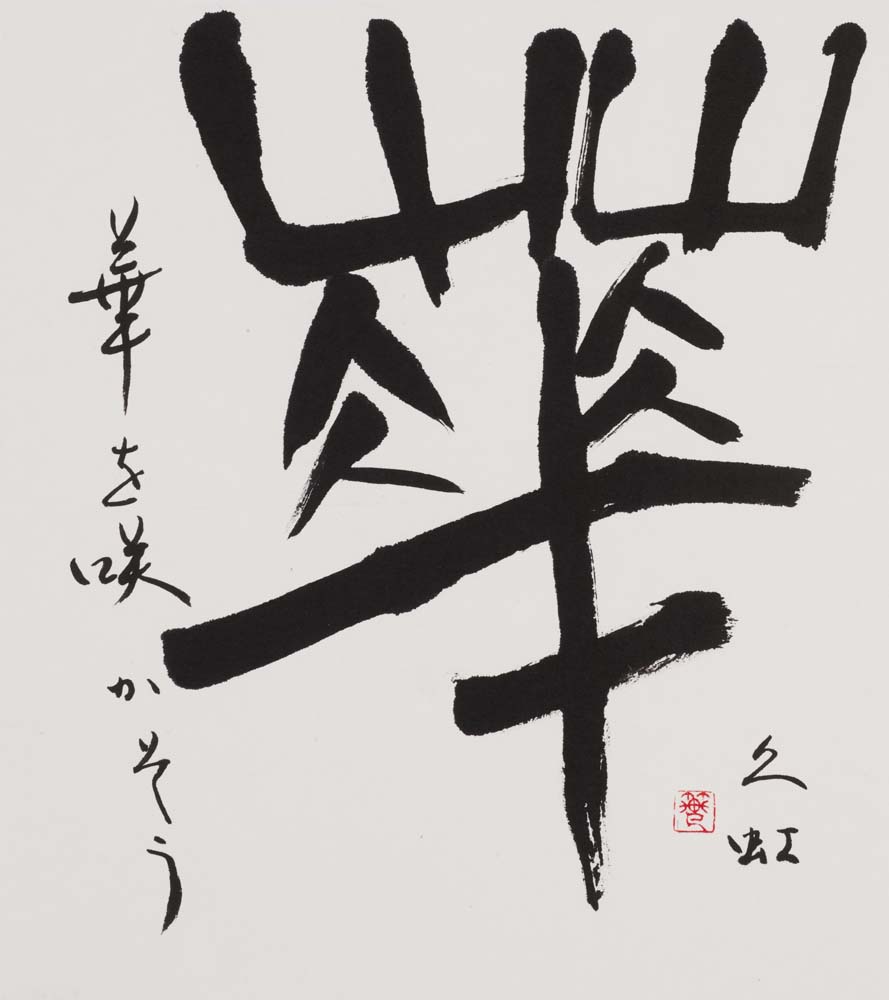 華
華を咲かそう
久虹